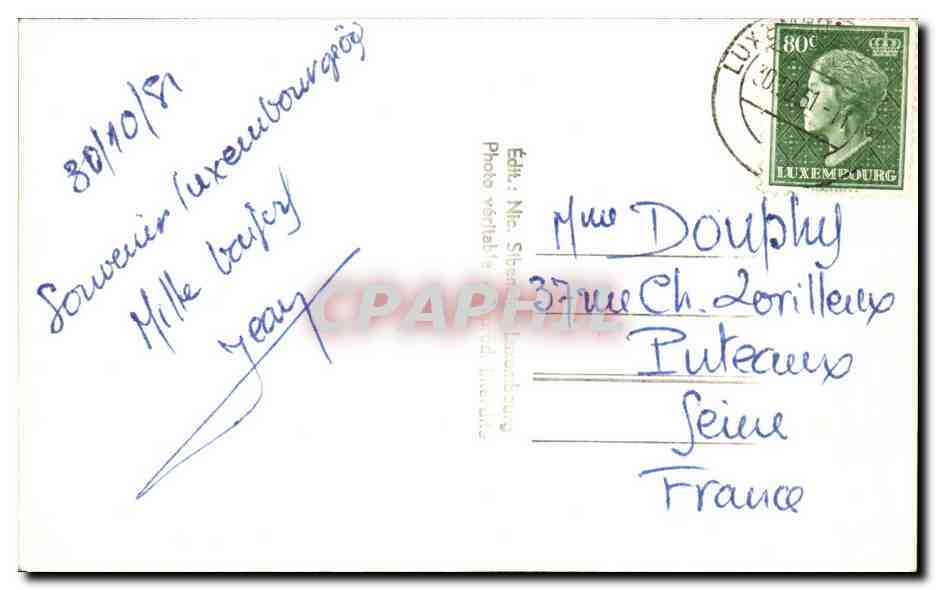 30/10/51
Souvenir luxembourgeois
Mille baisers
Jean
Édit.: Nic. Luxembourg
Photo véritable interdite
LUX
30.10.51
80c
LUXEMBOURG
Mme Douphy
37 rue Ch. Lorilleux
Puteaux
Seine
France
CPAPHIL